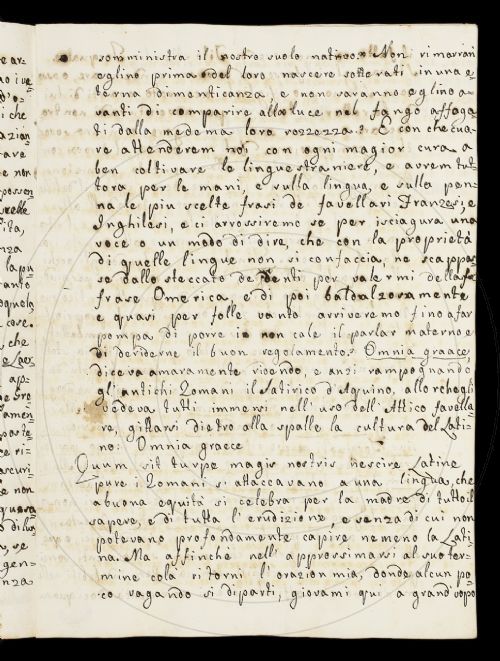 somministra il nostro suolo nativo? Non rimarran
eglino prima del loro nascere sotterati in una e=
terna dimenticanza e non saranno eglino a=
vanti di comparire alla luce nel fango affoga
ti dalla medema loro rozzezza? E con che cua=
re attenderem noi con ogni magior cura a
ben coltivare le lingue straniere, e avrem tut=
tora per le mani, e sulla lingua, e sulla pen=
na le più scelte frasi de favellari Franzesi, e
Inghilesi, e ci arrossiremo se per isciagura una
voce o un modo di dire, che con la proprietà
di quelle lingue non si confaccia, ne scappas
se dallo steccato de denti per valermi della
frase Omerica, e di poi baldalzosamente
e quasi per folle vanto arriveremo fino a far
pompa di porre in non cale il parlar materno e
di deriderne il buon regolamento. Omnia graece,
diceva amaramente ridendo, e anzi rampognando
gli antichi Romani il Satirico d'Aquino, allorchegli
vedeva tutti immersi nell'uso dell'Attico favella=
re, gittarsi dietro alla spalle la cultura del Lati=
no: Omnia graece
Quum sit turpe magis nostris nescire Latine
pure i Romani si attaccavano a una lingua, che
a buona equità si celebra per la madre di tutto il
sapere, e di tutta l'erudizione, e senza di cui non
potevano profondamente capire nemeno la Lati=
na. Ma affinchè nell'approssimarsi al suo ter=
mine colà ritorni l'orazion mia, donde alcun po=
co vagando si diparti, giovami quì a grand'uopo